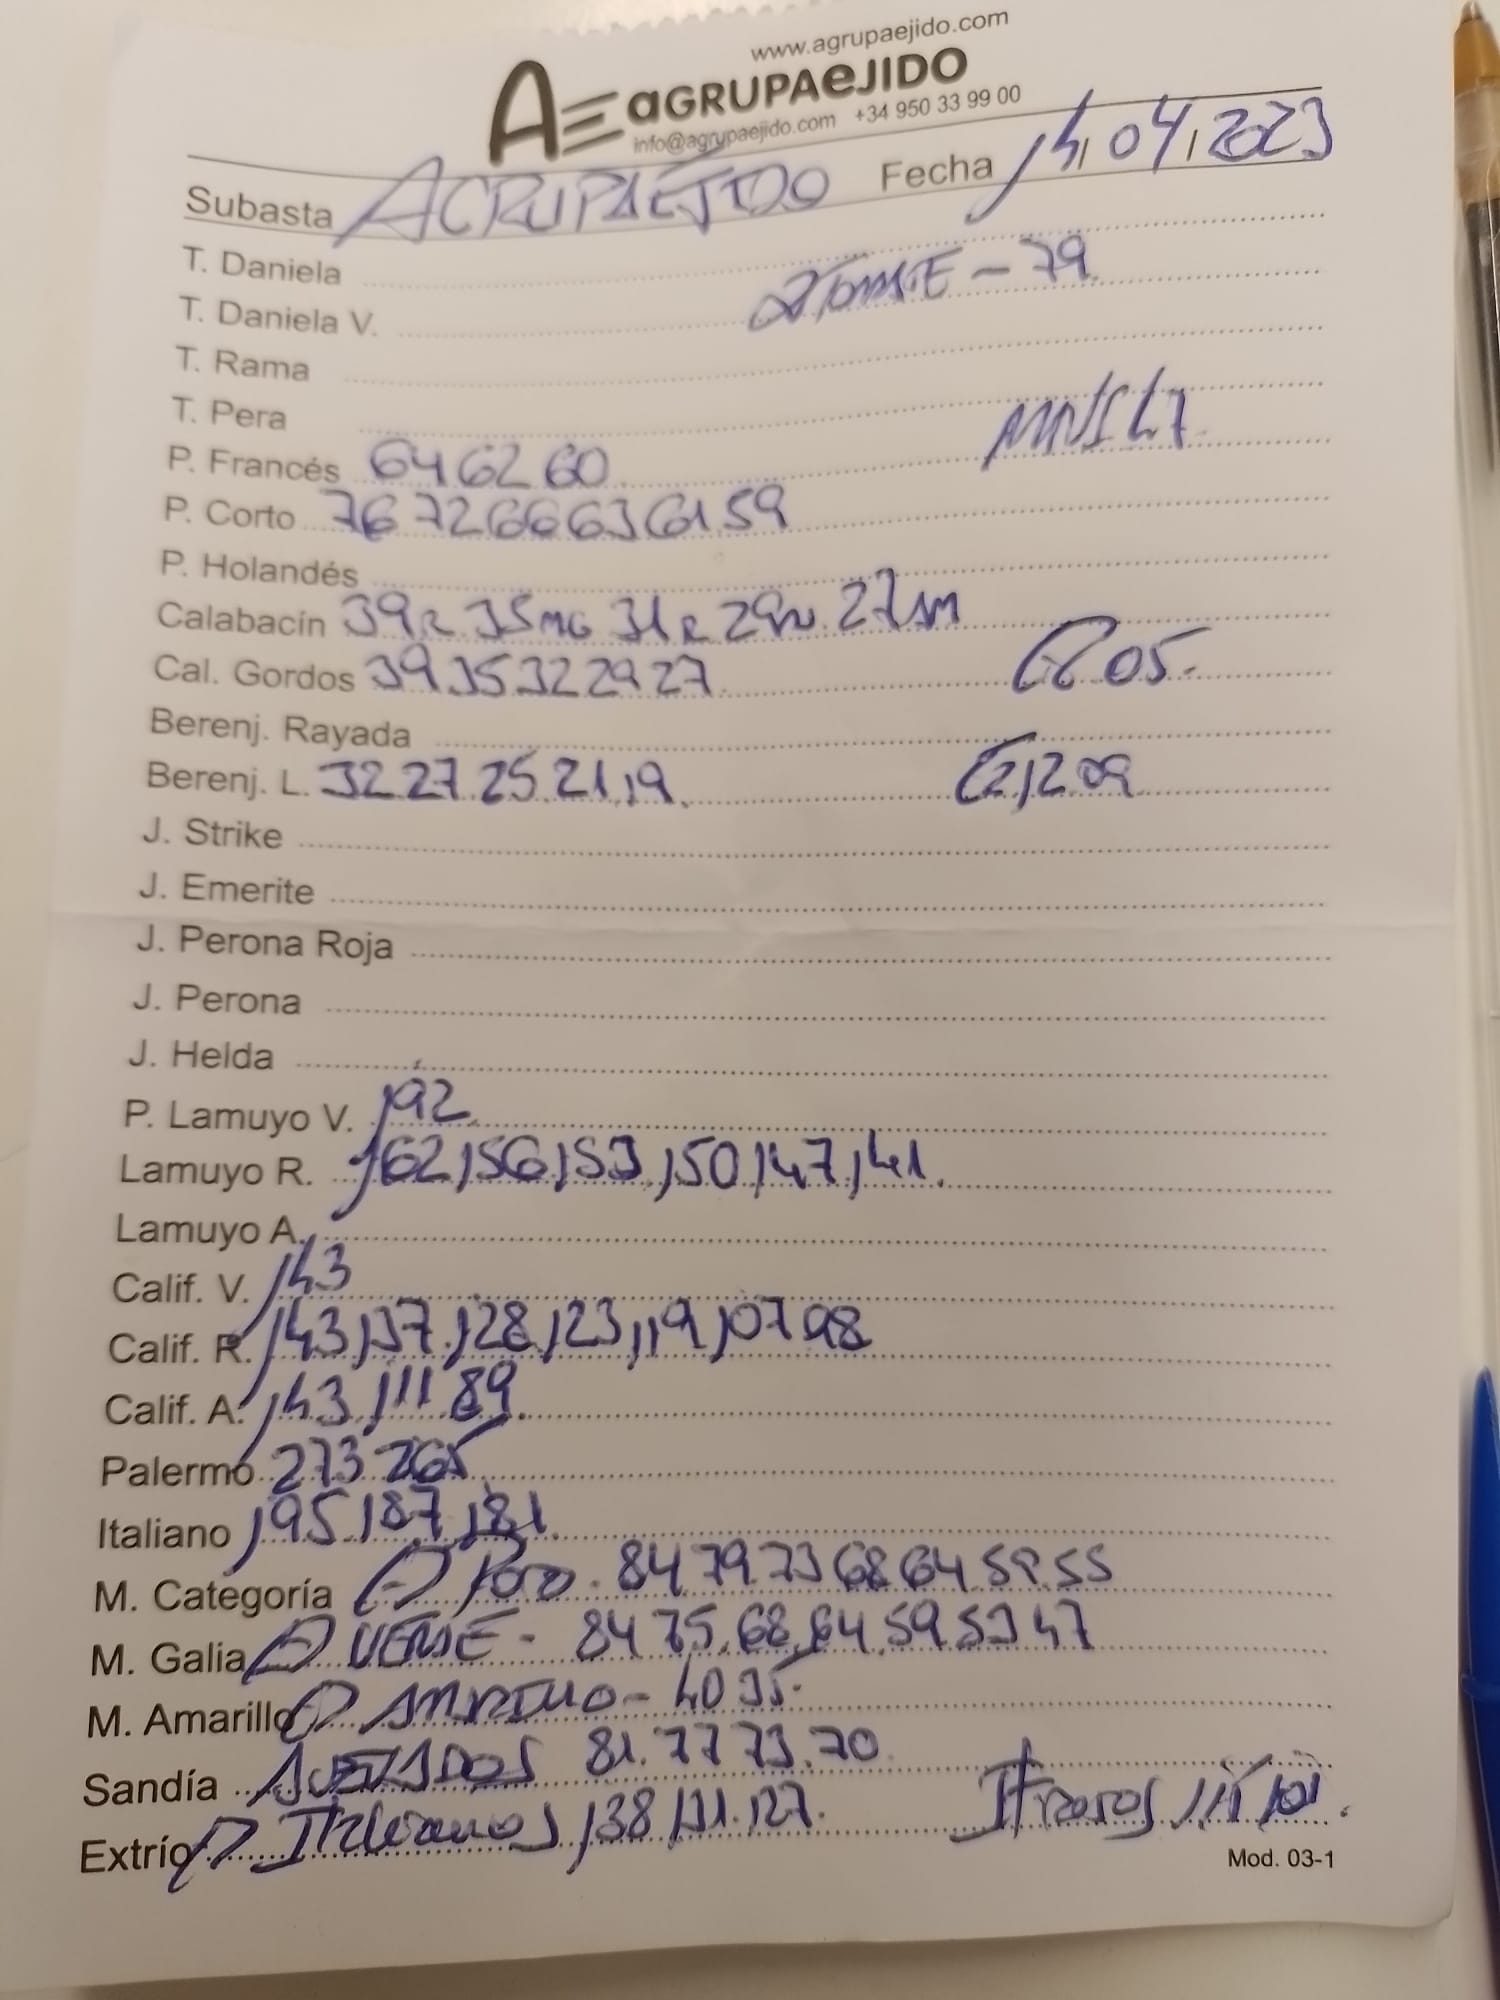 www.agrupaejido.com
AE aGRUPAeJIDO
info@agrupaejido.com +34 950 33 99 00
Subasta AGRUPAEJIDO Fecha 14,04,2023
T. Daniela
79
T. Daniela V.
T. Rama
T. Pera
P. Francés 64 62 60
P. Corto 76 72 66 63 61 59
P. Holandés
Calabacín 39R 35MG 31R 29 27SM
Cal. Gordos 39 35 32 29 27 05
Berenj. Rayada
Berenj. L. 32 27 25 21 19 09
J. Strike
J. Emerite
J. Perona Roja
J. Perona
J. Helda
P. Lamuyo V. 192
Lamuyo R. 162 156 153 150 147 141
Lamuyo A.
Calif. V. 143
Calif. R. 143 137 128 123 119 107 98
Calif. A. 143 111 89
Palermo 273 265
Italiano 195 187 181
M. Categoría ROJO 84 79 73 68 64 59 55
M. Galia VERDE - 84 75 68 64 59 53 47
M. Amarillo AMARILLO - 40 35
Sandía 81 77 73 70
Extrío Italianos 138 131 127
Mod. 03-1